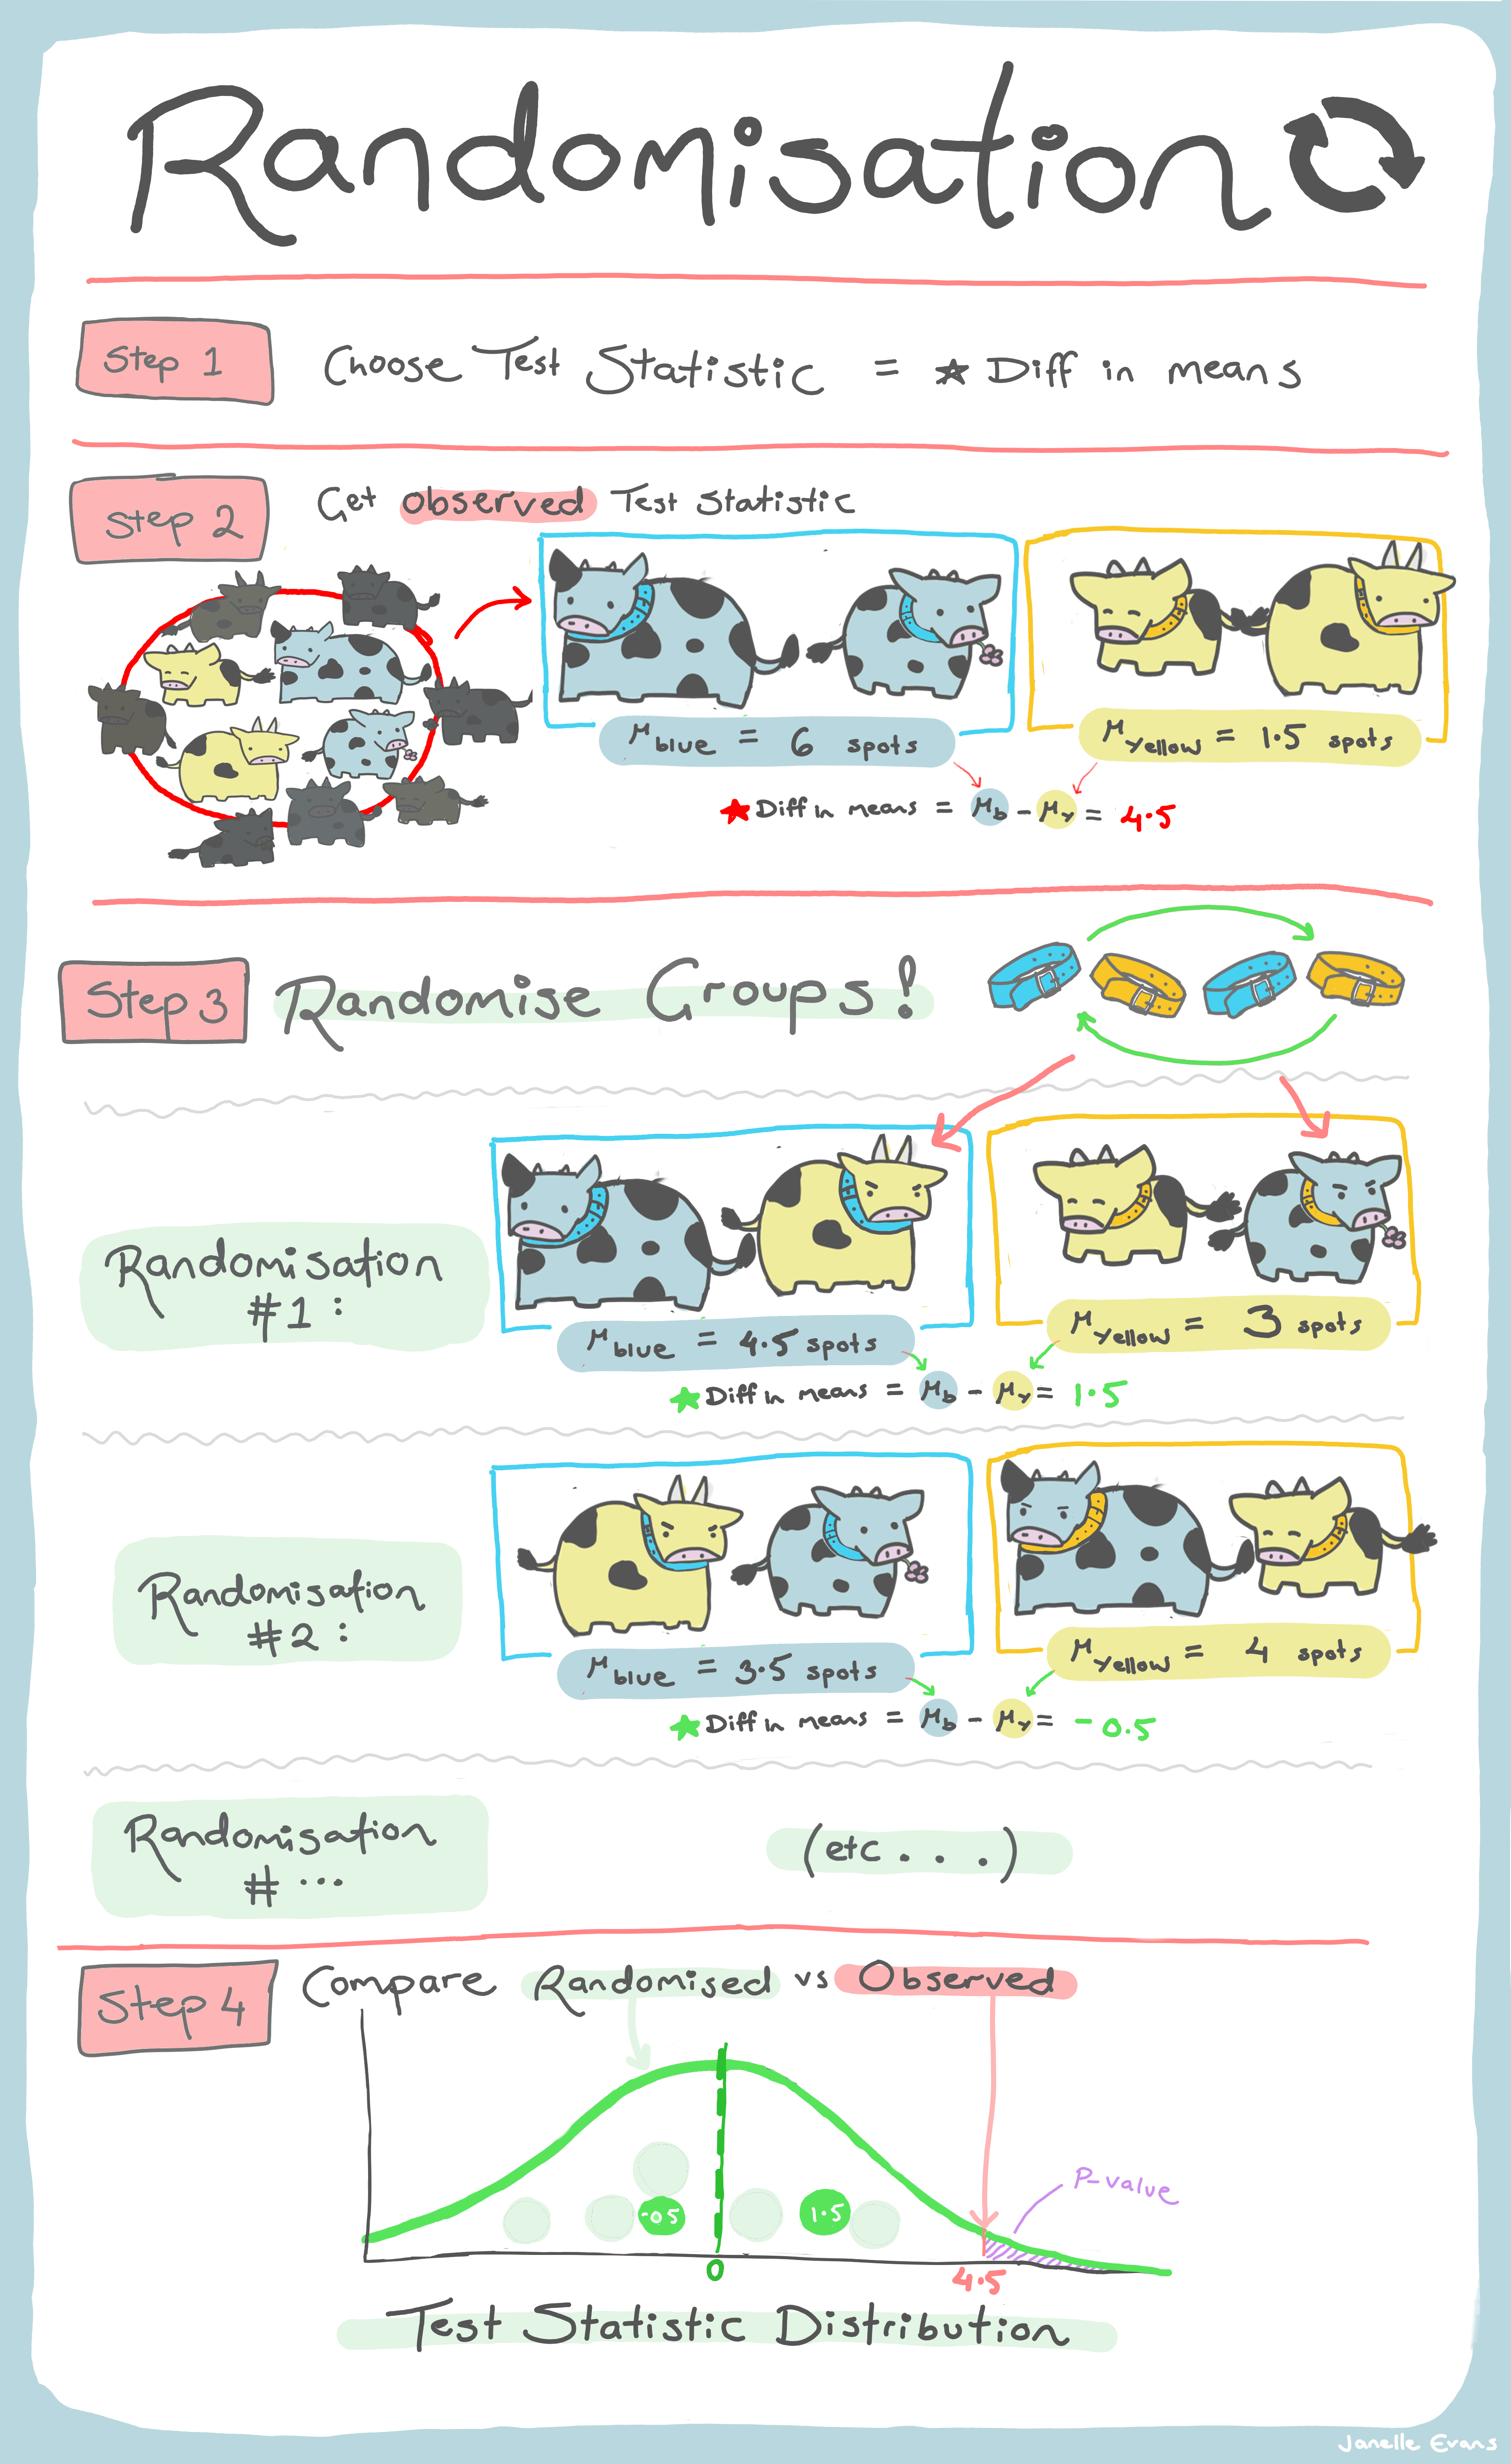 Randomisation
Step 1
Choose Test Statistic = ★ Diff in means
Step 2
Get observed Test Statistic
μblue = 6 spots
μyellow = 1.5 spots
★ Diff in means = μb - μy = 4.5
Step 3
Randomise Groups!
Randomisation
#1:
μblue = 4.5 spots
μyellow = 3 spots
★ Diff in means = μb - μy = 1.5
Randomisation
#2:
μblue = 3.5 spots
μyellow = 4 spots
★ Diff in means = μb - μy = -0.5
Randomisation
# ...
(etc . . . )
Step 4
Compare Randomised vs Observed
P-value
-0.5
1.5
0
4.5
Test Statistic Distribution
Janelle Evans